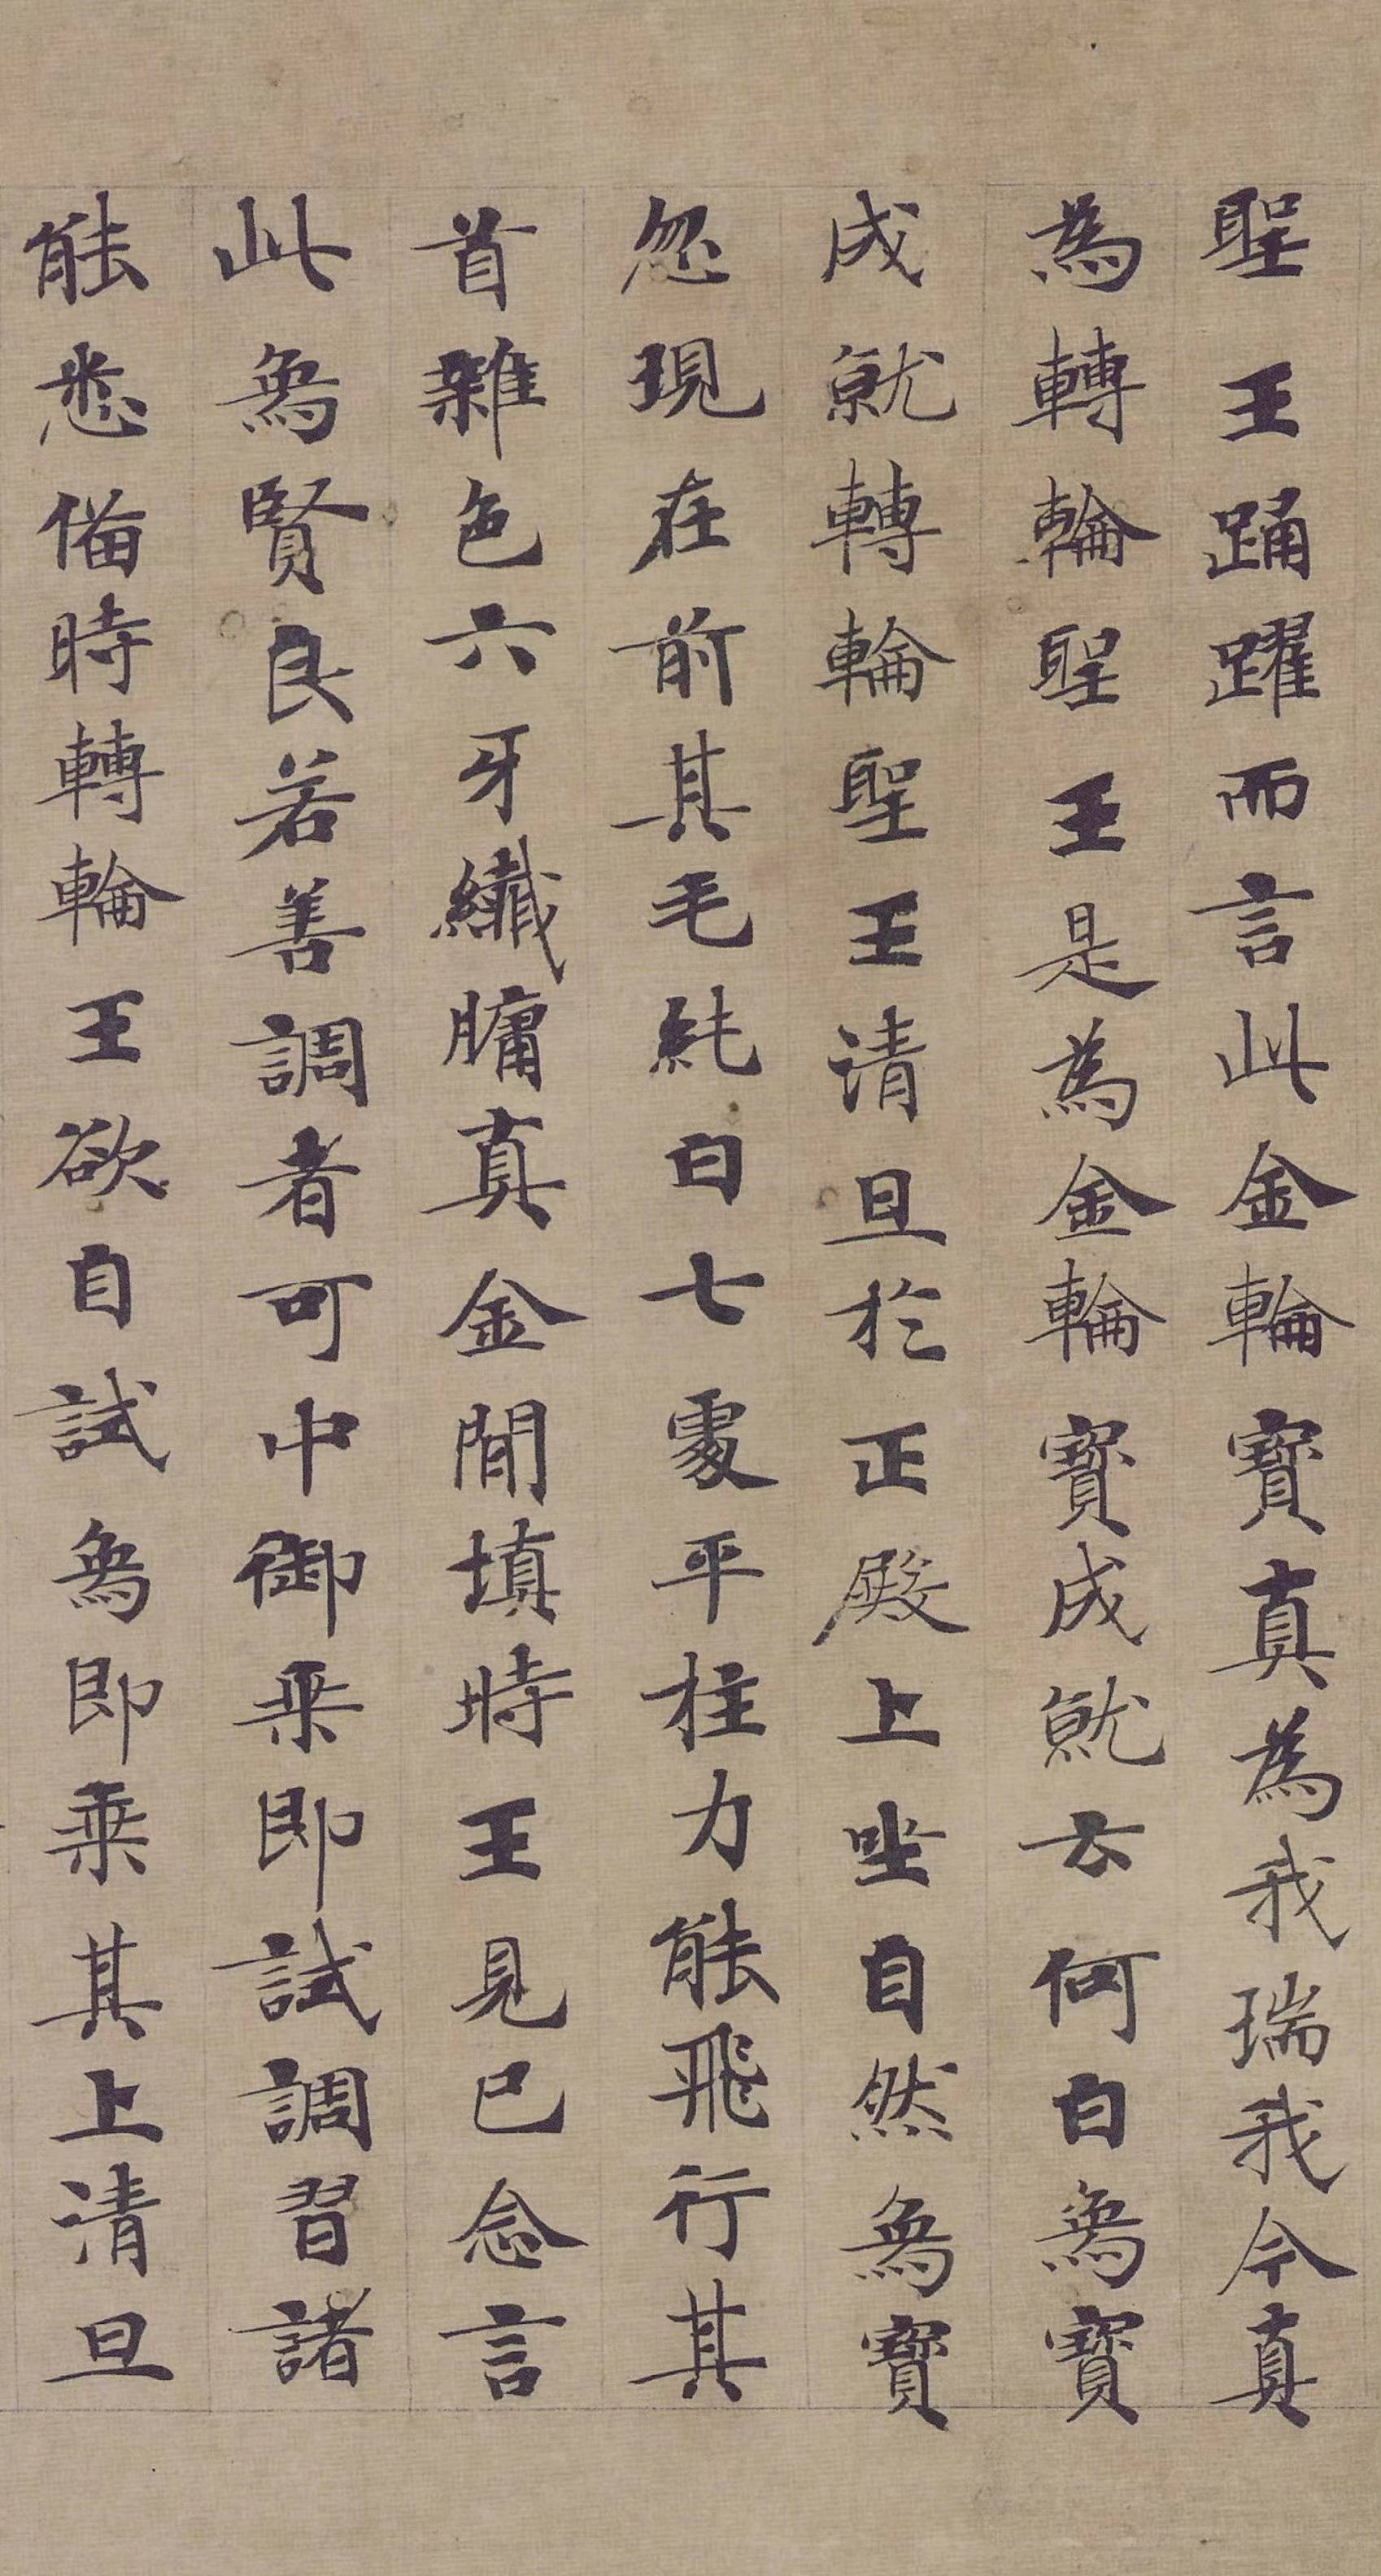 聖王踊躍而言此金輪寶真為我瑞我今真
為轉輪聖王是為金輪寶成就云何白象寶
成就轉輪聖王清旦於正殿上坐自然象寶
忽現在前其毛純白七處平柱力能飛行其
首雜色六牙纖𦟛真金間填時王見已念言
此象賢良若善調者可中御乘即試調習諸
能悉俻時轉輪王欲自試象即乘其上清旦